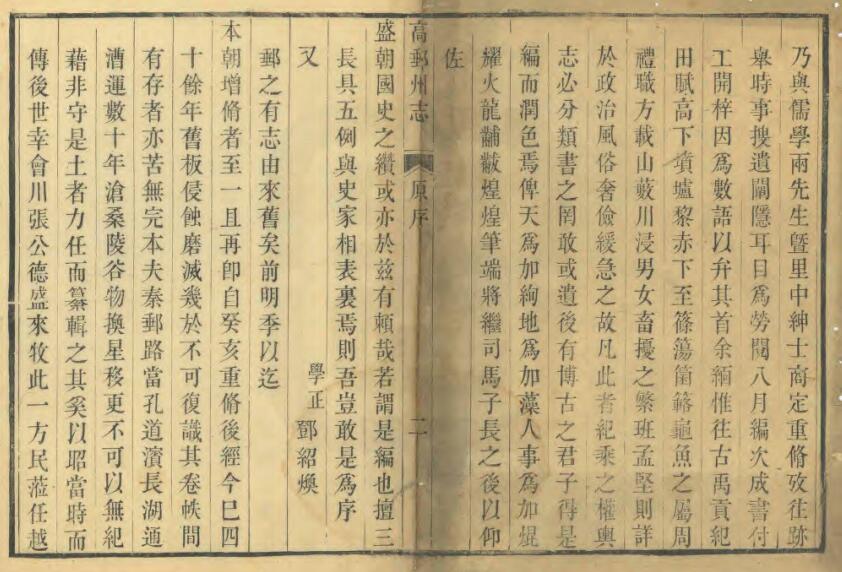 乃與儒學兩先生曁里中紳士商定重脩攷往跡
舉時事搜遺闡隱耳目爲勞閱八月編次成書付
工開梓因爲數語以弁其首余緬惟往古禹貢紀
田賦高下墳壚黎赤下至篠蕩箘簵龜魚之屬周
禮職方載山藪川浸男女畜擾之繁班孟堅則詳
於政治風俗奢儉緩急之故凡此者紀乘之權輿
志必分類書之罔敢或遺後有博古之君子得是
編而潤色焉俾天爲加絢地爲加藻人事爲加焜
耀火龍黼黻煌煌筆端將繼司馬子長之後以仰
佐
高郵州志 原序 二
盛朝國史之纘或亦於兹有賴哉若謂是編也擅三
長具五例與史家相表裏焉則吾豈敢是爲序
又 學正 鄧紹煥
郵之有志由來舊矣前明季以迄
本朝增脩者至一且再卽自癸亥重脩後經今巳四
十餘年舊板侵蝕磨滅幾於不可復識其卷帙間
有存者亦苦無完本夫秦郵路當孔道濱長湖通
漕運數十年滄桑陵谷物換星移更不可以無紀
藉非守是土者力任而纂輯之其奚以昭當時而
傳後世幸會川張公德盛來牧此一方民蒞任越